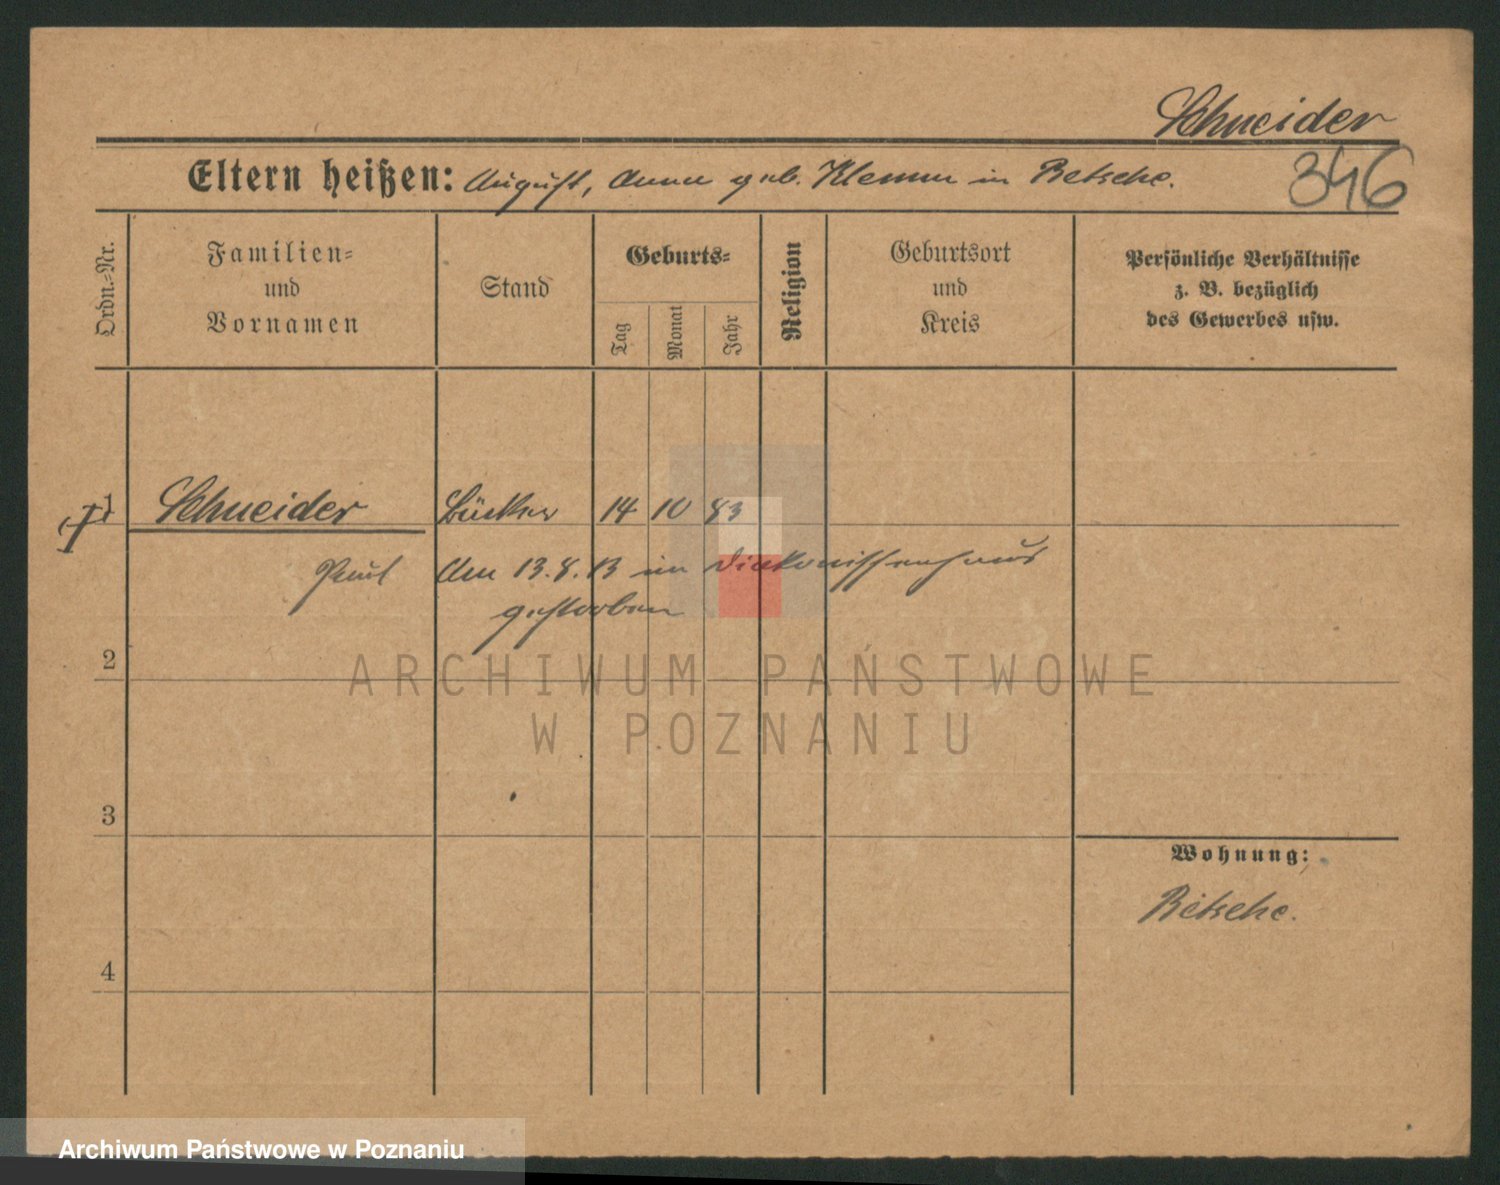 Schneider
Eltern heißen: August, Anna geb. Klemm in Betsche.
346
Ordn.-Nr.
Familien-
und
Vornamen
Stand
Geburts-
Tag
Monat
Jahr
Religion
Geburtsort
und
Kreis
Persönliche Verhältnisse
z. B. bezüglich
des Gewerbes usw.
1 Schneider Bäcker 14 10 83
Paul Am 13.8.13 im Diakonissenhaus
gestorben
2
ARCHIWUM PAŃSTWOWE
W POZNANIU
3
Wohnung:
Betsche.
4
Archiwum Państwowe w Poznaniu